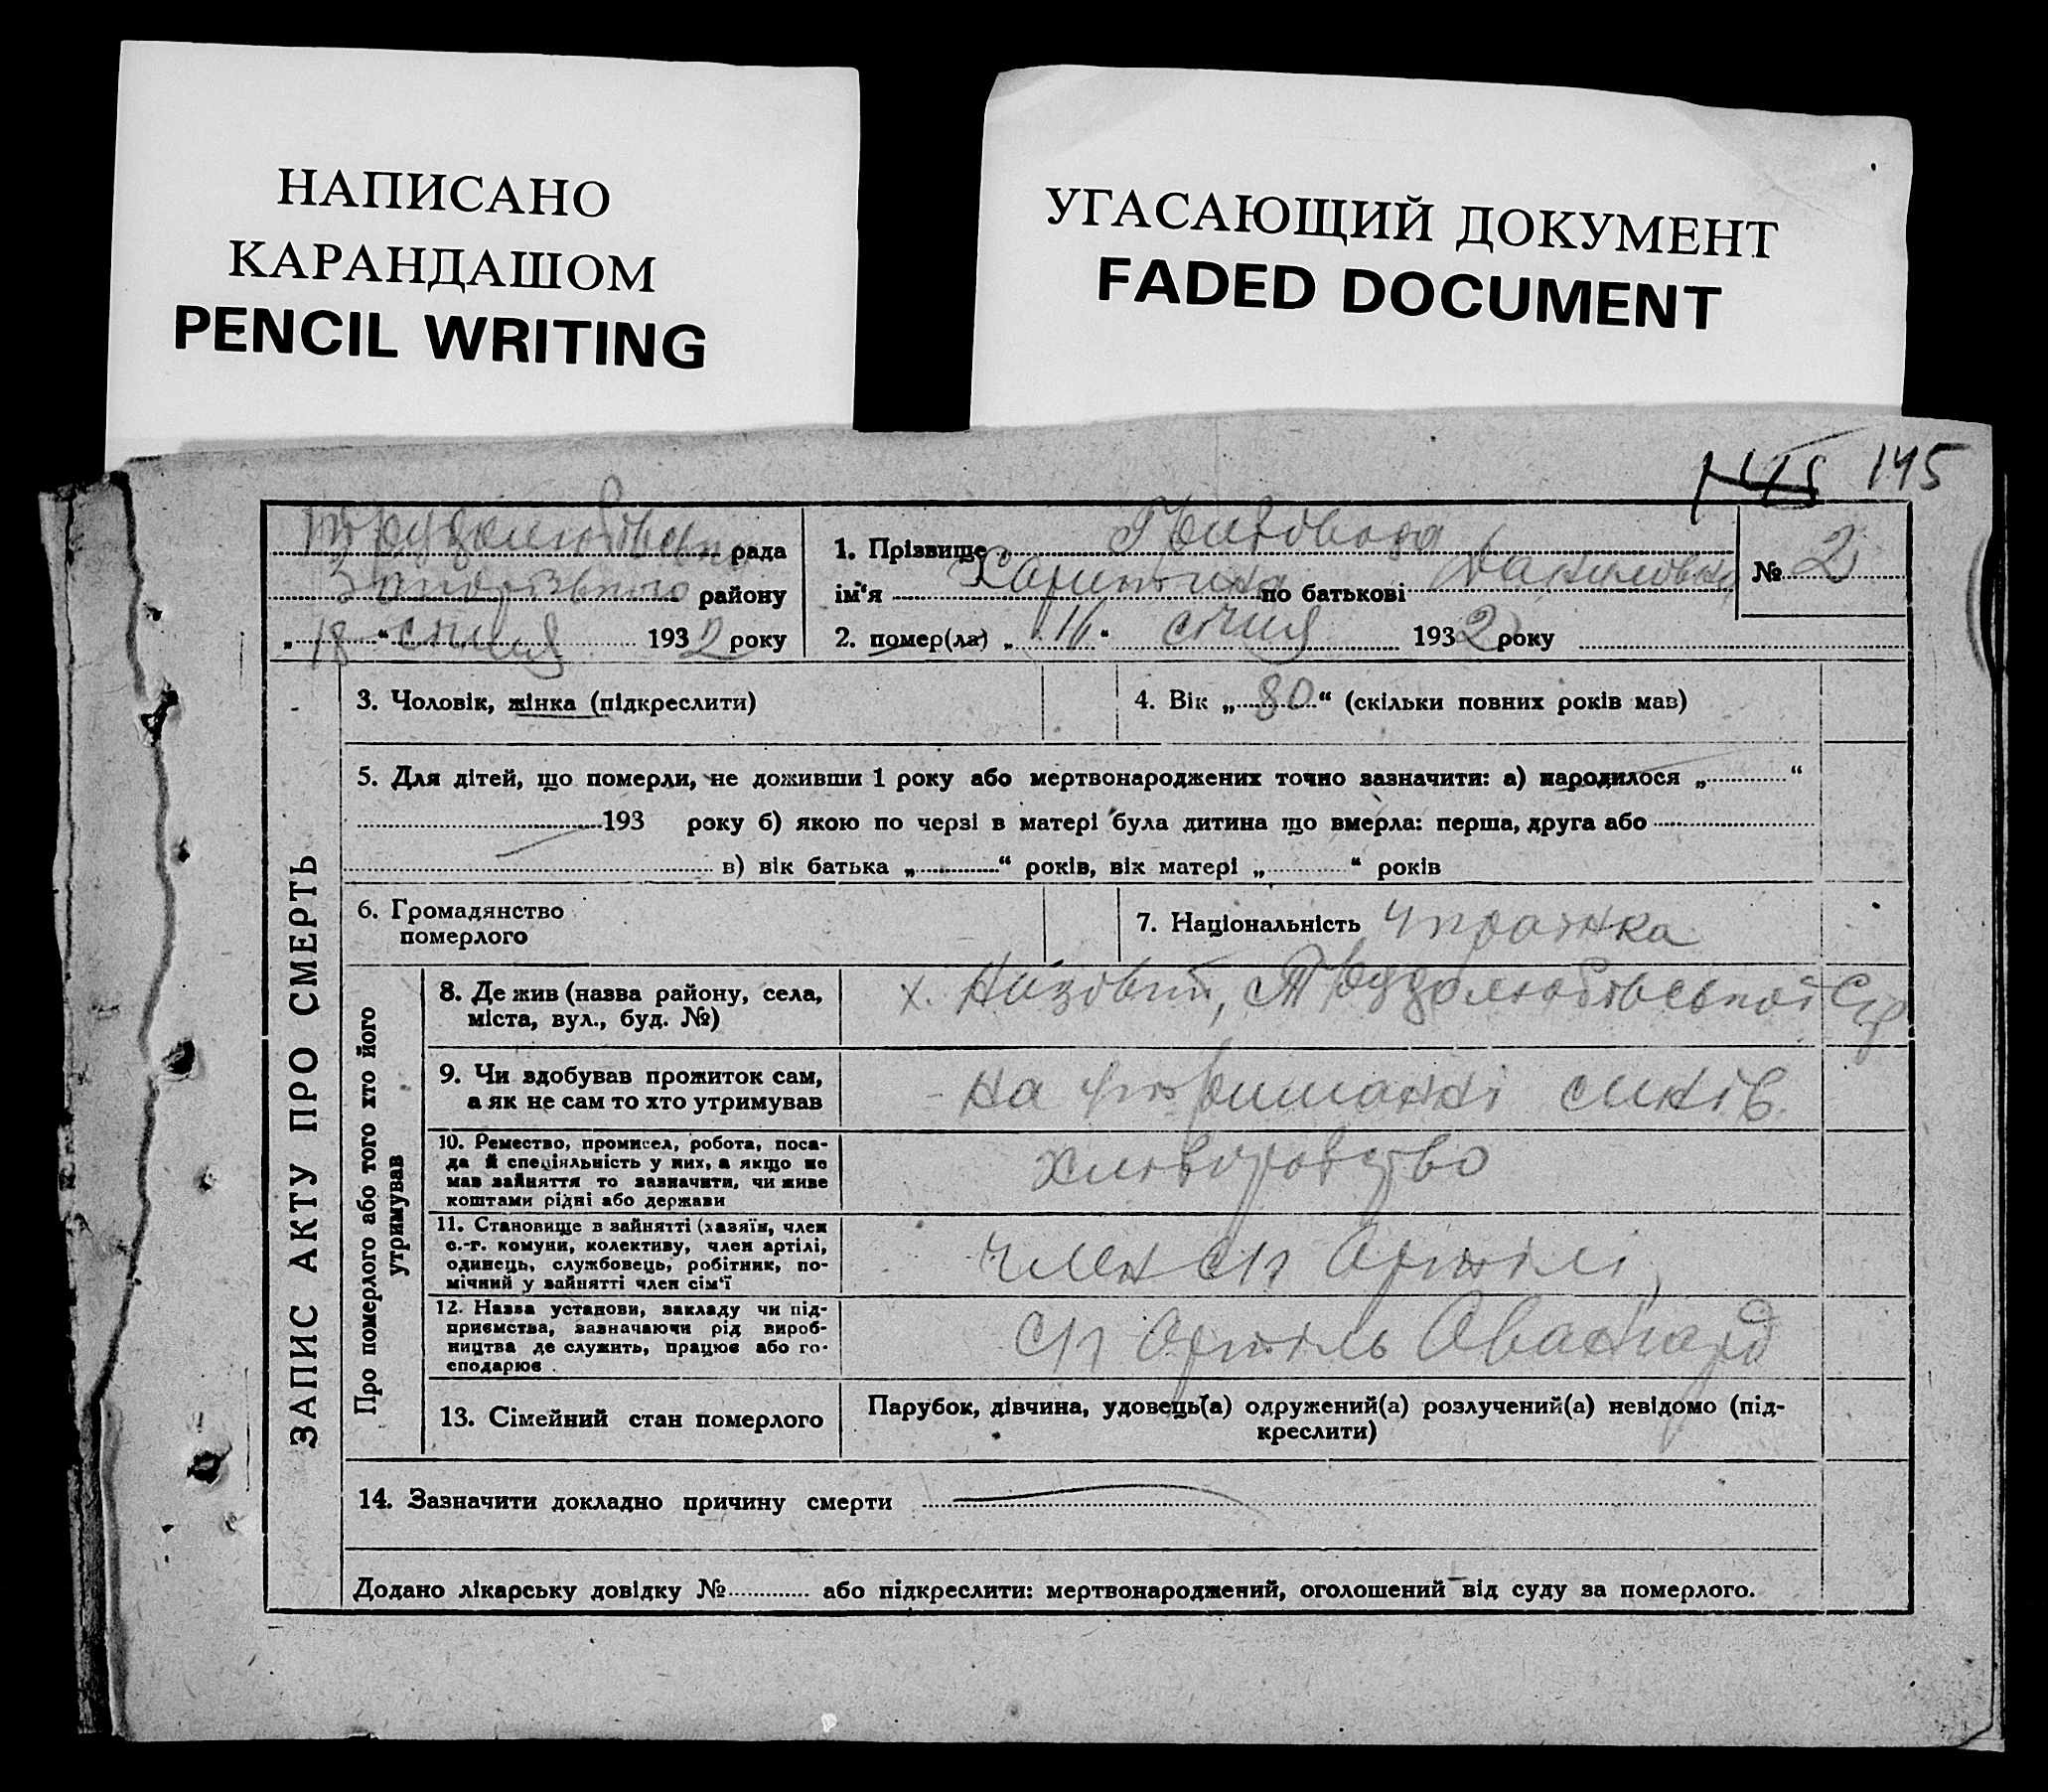 НАПИСАНО
КАРАНДАШОМ
PENCIL WRITING
УГАСАЮЩИЙ ДОКУМЕНТ
FADED DOCUMENT
145
рада
району
„ 18 “ січня 1932 року
1. Прізвище
ім'я по батькові Даниловна
№ 2
2. помер(ла) „ 16 “ січня 1932 року
ЗАПИС АКТУ ПРО СМЕРТЬ
3. Чоловік, жінка (підкреслити)
4. Вік „ 80 “ (скільки повних років мав)
5. Для дітей, що померли, не доживши 1 року або мертвонароджених точно зазначити: а) народилося „ “
193 року б) якою по черзі в матері була дитина що вмерла: перша, друга або
в) вік батька „ “ років, вік матері „ “ років
6. Громадянство
померлого
7. Національність Українка
Про померлого або того хто його
утримував
8. Де жив (назва району, села,
міста, вул., буд. №)
х. Низовий, Трудолюбовської С/р
9. Чи здобував прожиток сам,
а як не сам то хто утримував
на утриманні синів
10. Ремество, промисел, робота, поса-
да й спеціяльність у них, а якщо не
мав зайняття то зазначити, чи живе
коштами рідні або держави
хліборобство
11. Становище в зайнятті (хазяїн, член
с.-г. комуни, колективу, член артілі,
одинець, службовець, робітник, по-
мічний у зайнятті член сім'ї
член с/г Артілі
12. Назва установи, закладу чи під-
приємства, зазначаючи рід вироб-
ництва де служить, працює або го-
сподарює
с/г Артіль Авангард
13. Сімейний стан померлого
Парубок, дівчина, удовець(а) одружений(а) розлучений(а) невідомо (під-
креслити)
14. Зазначити докладно причину смерти
Додано лікарську довідку № або підкреслити: мертвонароджений, оголошений від суду за померлого.